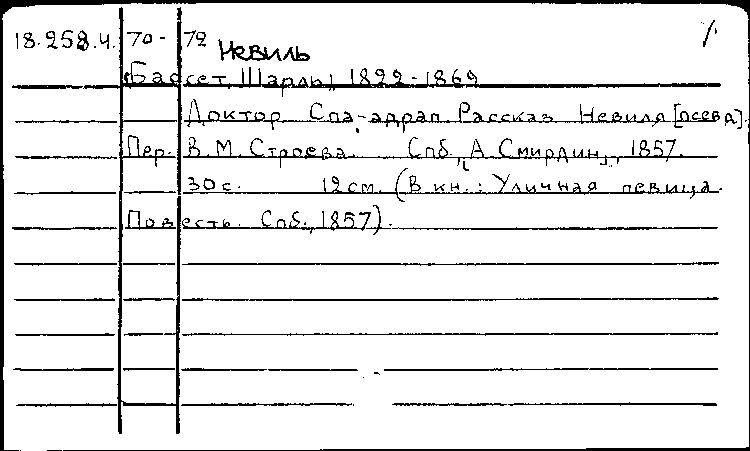 18.258.4. 70-72 Невиль
[Бассет, Шарль] 1822-1869
Доктор Спа-адрап. Рассказ Невиля [псевд].
Пер. В.М. Строева. Спб., "А. Смирдин", 1857.
30 с. 12 см. (В кн.: Уличная певица.
Повесть. Спб., 1857).